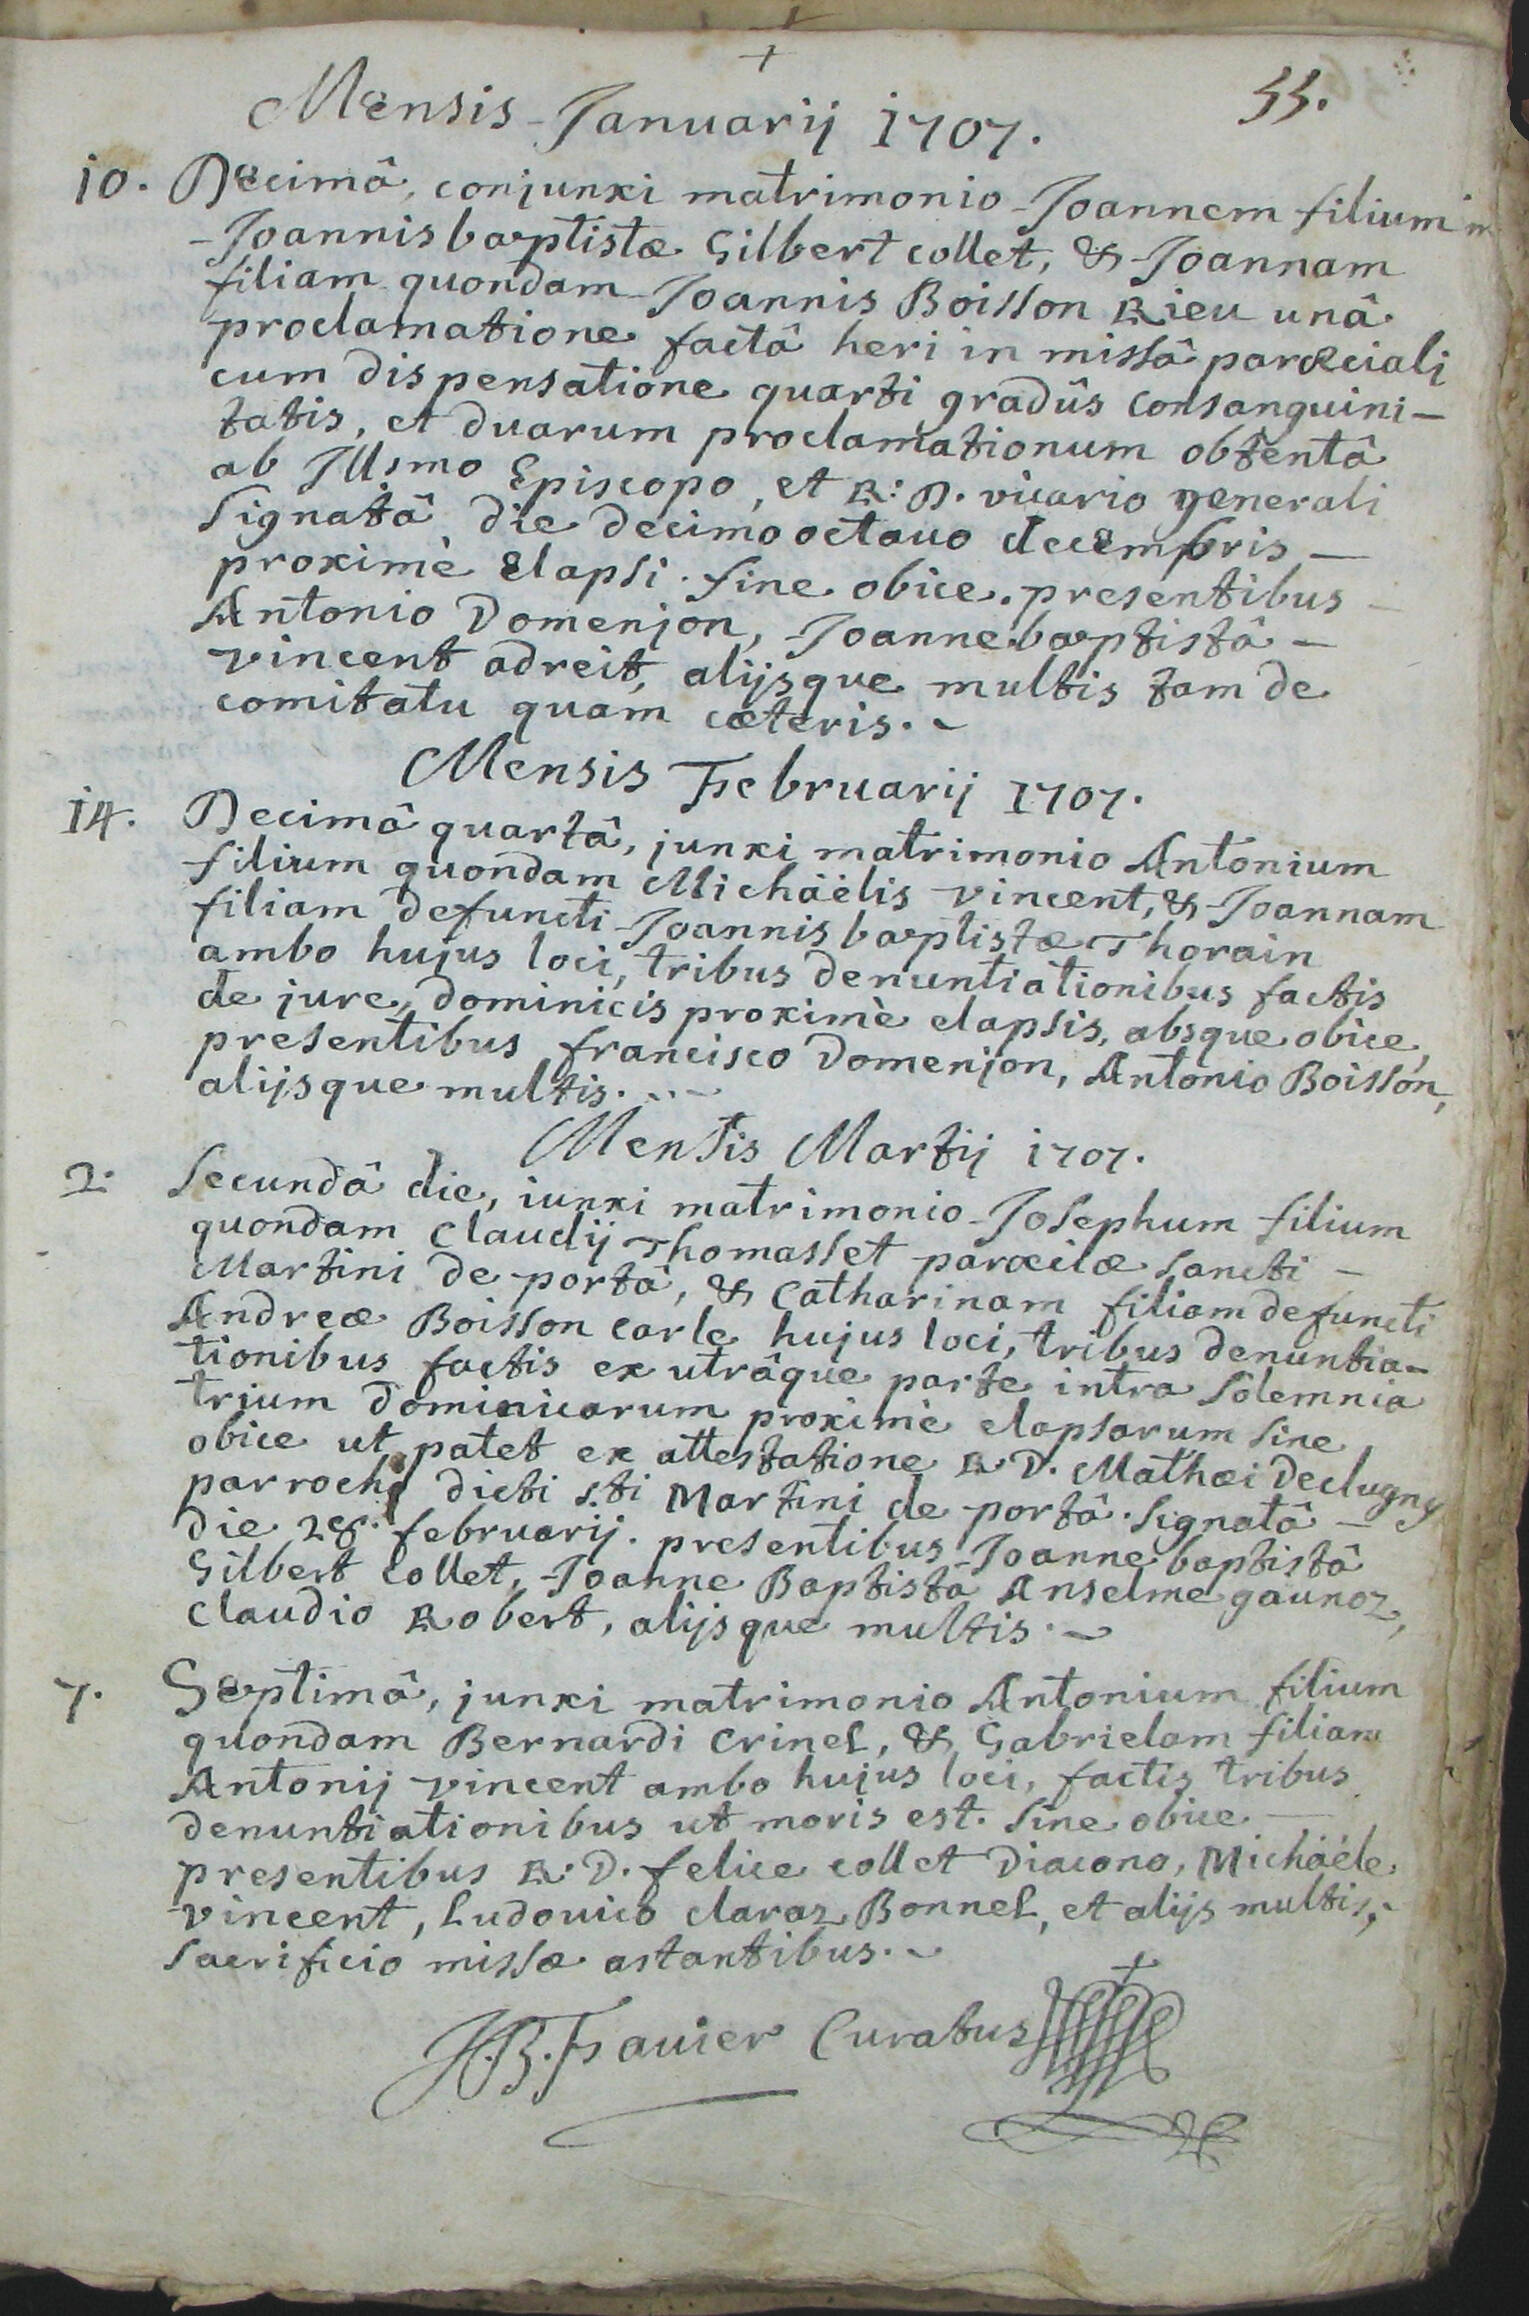 +
Mensis Januarij 1707.
55.
10. Decimâ, conjunxi matrimonio Joannem filium
Joannis baptistæ Gilbert collet, & Joannam
filiam quondam Joannis Boisson Rieu unâ
proclamatione factâ heri in missâ parœciali
cum dispensatione quarti gradûs consanguini-
tatis, et duarum proclamationum obtentâ
ab Illsmo Episcopo, et R: D. vicario generali
signatâ die decimo octauo decembris —
proximè elapsi. sine obice. presentibus —
Antonio Domenjon, Joanne baptistâ —
vincent adreit, alijsque multis tam de
comitatu quam cæteris.
Mensis Februarij 1707.
14. Decimâ quartâ, junxi matrimonio Antonium
filium quondam Michäélis vincent, & Joannam
filiam defuncti Joannis baptistæ Thorain
ambo hujus loci, tribus denuntiationibus factis
de jure, dominicis proximè elapsis, absque obice,
presentibus francisco Domenjon, Antonio Boisson,
alijsque multis. ..-
Mensis Martij 1707.
2. Secundâ die, iunxi matrimonio Josephum filium
quondam Claudij Thomasset parœciæ sancti —
Martini de portâ, & Catharinam filiam defuncti
Andreæ Boisson carle hujus loci, tribus denuntia-
tionibus factis ex utrâque parte intra solemnia
trium dominicarum proximè elapsarum sine
obice ut patet ex attestatione R. D. Mathæi declugny
parrochi dicti sti Martini de portâ. signatâ —
die 28. februarij. presentibus Joanne baptistâ
Gilbert collet, Joanne Baptistâ Anselme gaunoz,
Claudio Robert, alijsque multis.
7. Septimâ, junxi matrimonio Antonium filium
quondam Bernardi Crinel, & Gabrielam filiam
Antonij vincent ambo hujus loci, factis tribus
denuntiationibus ut moris est. sine obice —
presentibus R: D. felice collet Diacono, Michäéle
vincent, Ludouico claraz Bonnel, et alijs multis,
sacrificio missæ astantibus.
J.B. Fauier Curatus